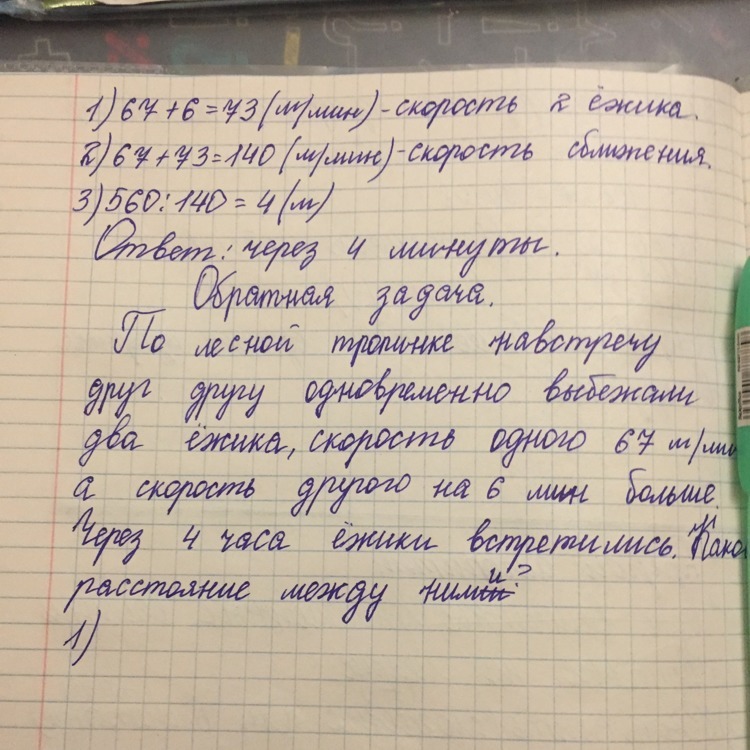 1) 67 + 6 = 73 (м/мин) - скорость 2 ёжика.
2) 67 + 73 = 140 (м/мин) - скорость сближения.
3) 560 : 140 = 4 (м)
Ответ: через 4 минуты.
Обратная задача.
По лесной тропинке навстречу
друг другу одновременно выбежали
два ёжика, скорость одного 67 м/мин
а скорость другого на 6 мин больше.
Через 4 часа ёжики встретились. Како
расстояние между ними?
1)